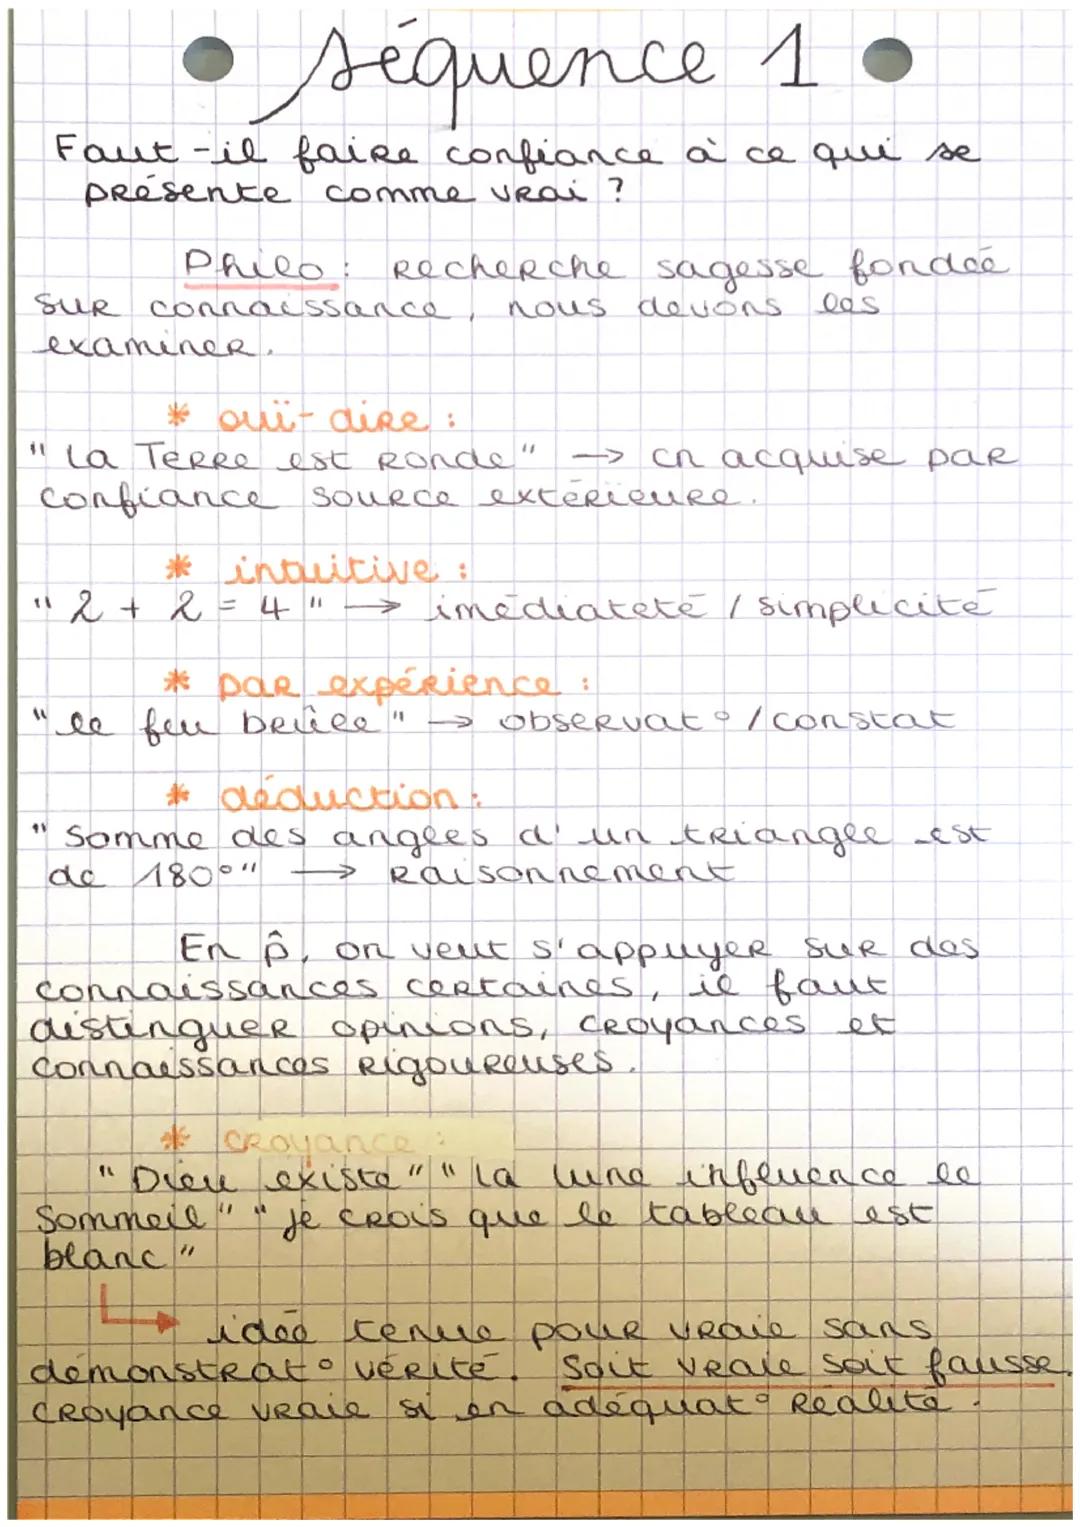 séquence 1
Faut-il faire confiance à ce qui se
présente comme vrai ?
Philo : recherche sagesse fondée
sur connaissance, nous devons les
examiner.
* ouï-dire :
"La Terre est ronde" → cn acquise par
confiance source extérieure.
* intuitive :
"2 + 2 = 4" → imédiateté / simplicité
* par expérience :
"le feu brûle" → observat° / constat
* déduction :
"Somme des angles d'un triangle est
de 180°" → raisonnement
En p̂, on veut s'appuyer sur des
connaissances certaines, il faut
distinguer opinions, croyances et
connaissances rigoureuses.
* croyance :
"Dieu existe" "La lune influence le
sommeil" "je crois que le tableau est
blanc"
idée tenue pour vraie sans
démonstrat° vérité. Soit vraie soit fausse.
croyance vraie si en adéquat° réalité.